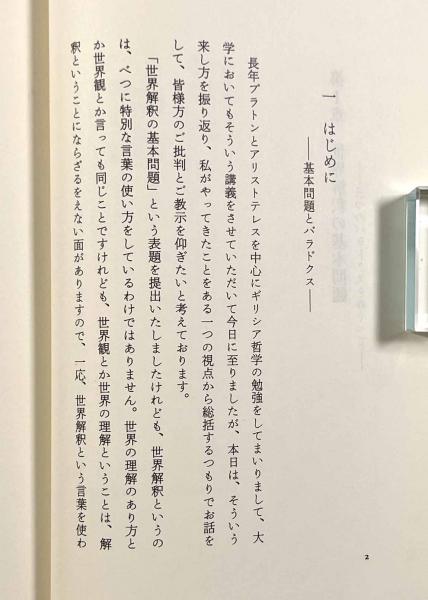 一 はじめに
――基本問題とパラドクス――
長年プラトンとアリストテレスを中心にギリシア哲学の勉強をしてまいりまして、大
学においてもそういう講義をさせていただいて今日に至りましたが、本日は、そういう
来し方を振り返り、私がやってきたことをある一つの視点から総括するつもりでお話を
して、皆様方のご批判とご教示を仰ぎたいと考えております。
「世界解釈の基本問題」という表題を提出いたしましたけれども、世界解釈というの
は、べつに特別な言葉の使い方をしているわけではありません。世界の理解のあり方と
か世界観とか言っても同じことですけれども、世界観とか世界の理解ということは、解
釈ということにならざるをえない面がありますので、一応、世界解釈という言葉を使わ
2